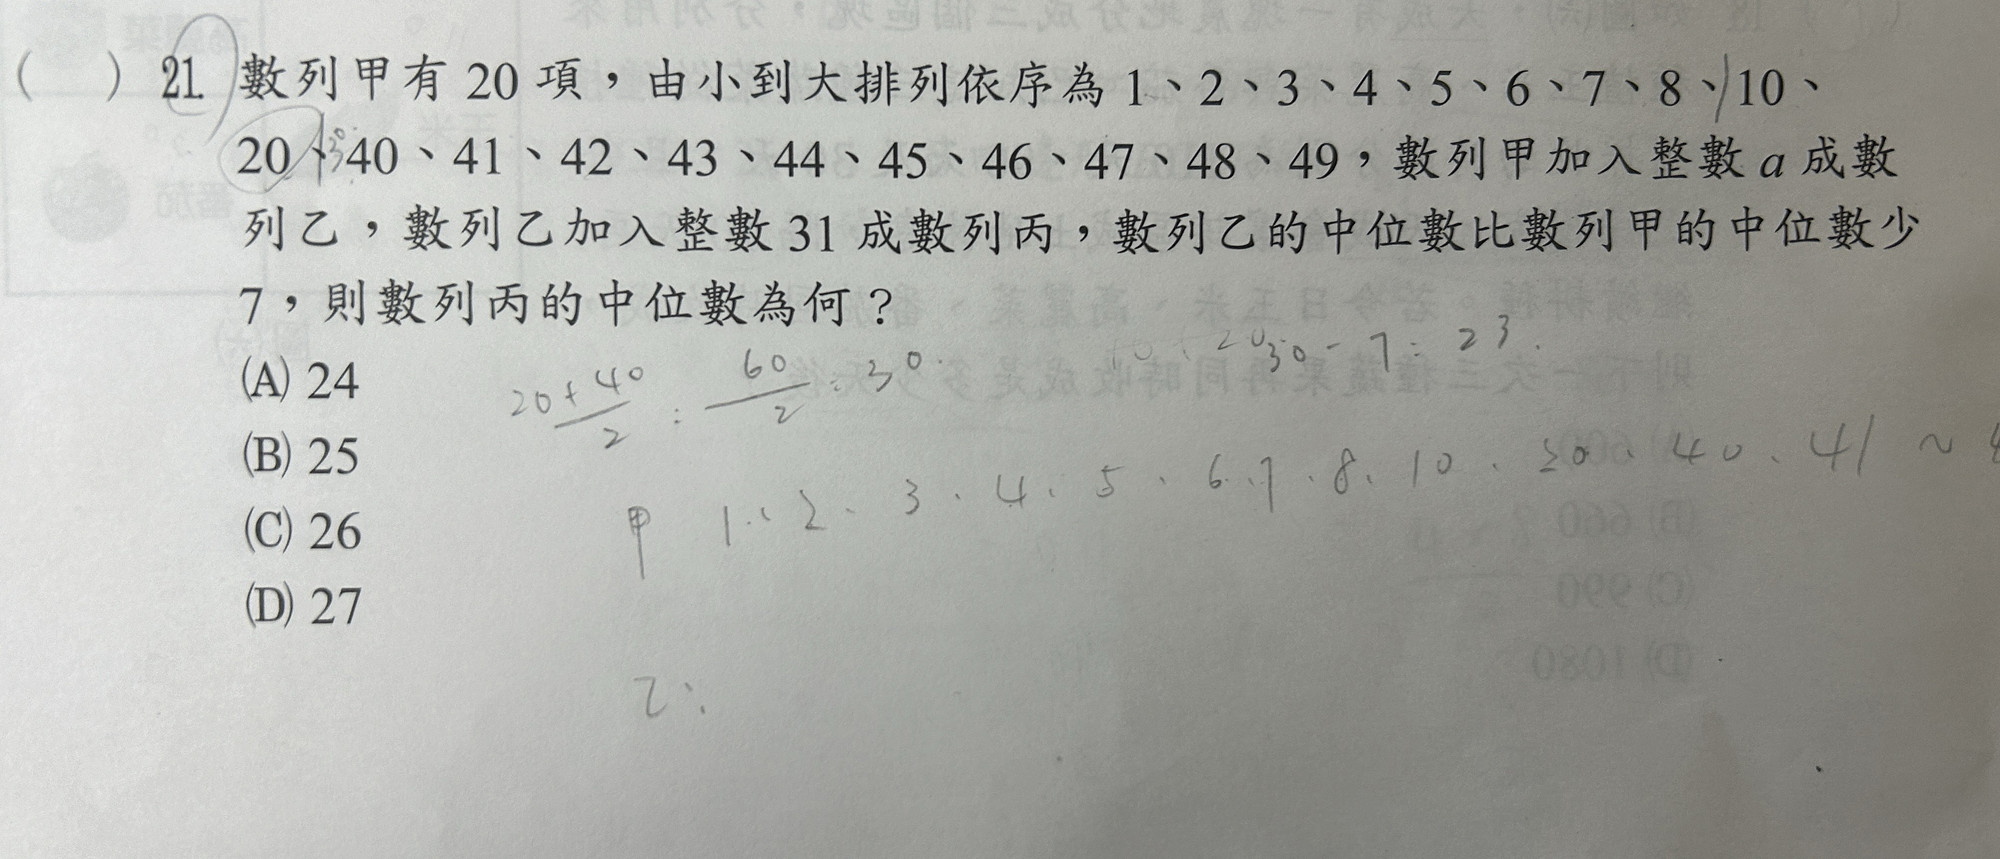 ( ) 21. 數列甲有 20 項，由小到大排列依序為 1、2、3、4、5、6、7、8、10、
20、40、41、42、43、44、45、46、47、48、49，數列甲加入整數 a 成數
列乙，數列乙加入整數 31 成數列丙，數列乙的中位數比數列甲的中位數少
7，則數列丙的中位數為何？
(A) 24
(B) 25
(C) 26
(D) 27
20+40/2 = 60/2 = 30
30-7=23.
甲 1、2、3、4、5、6、7、8、10、20、40、41~
乙：